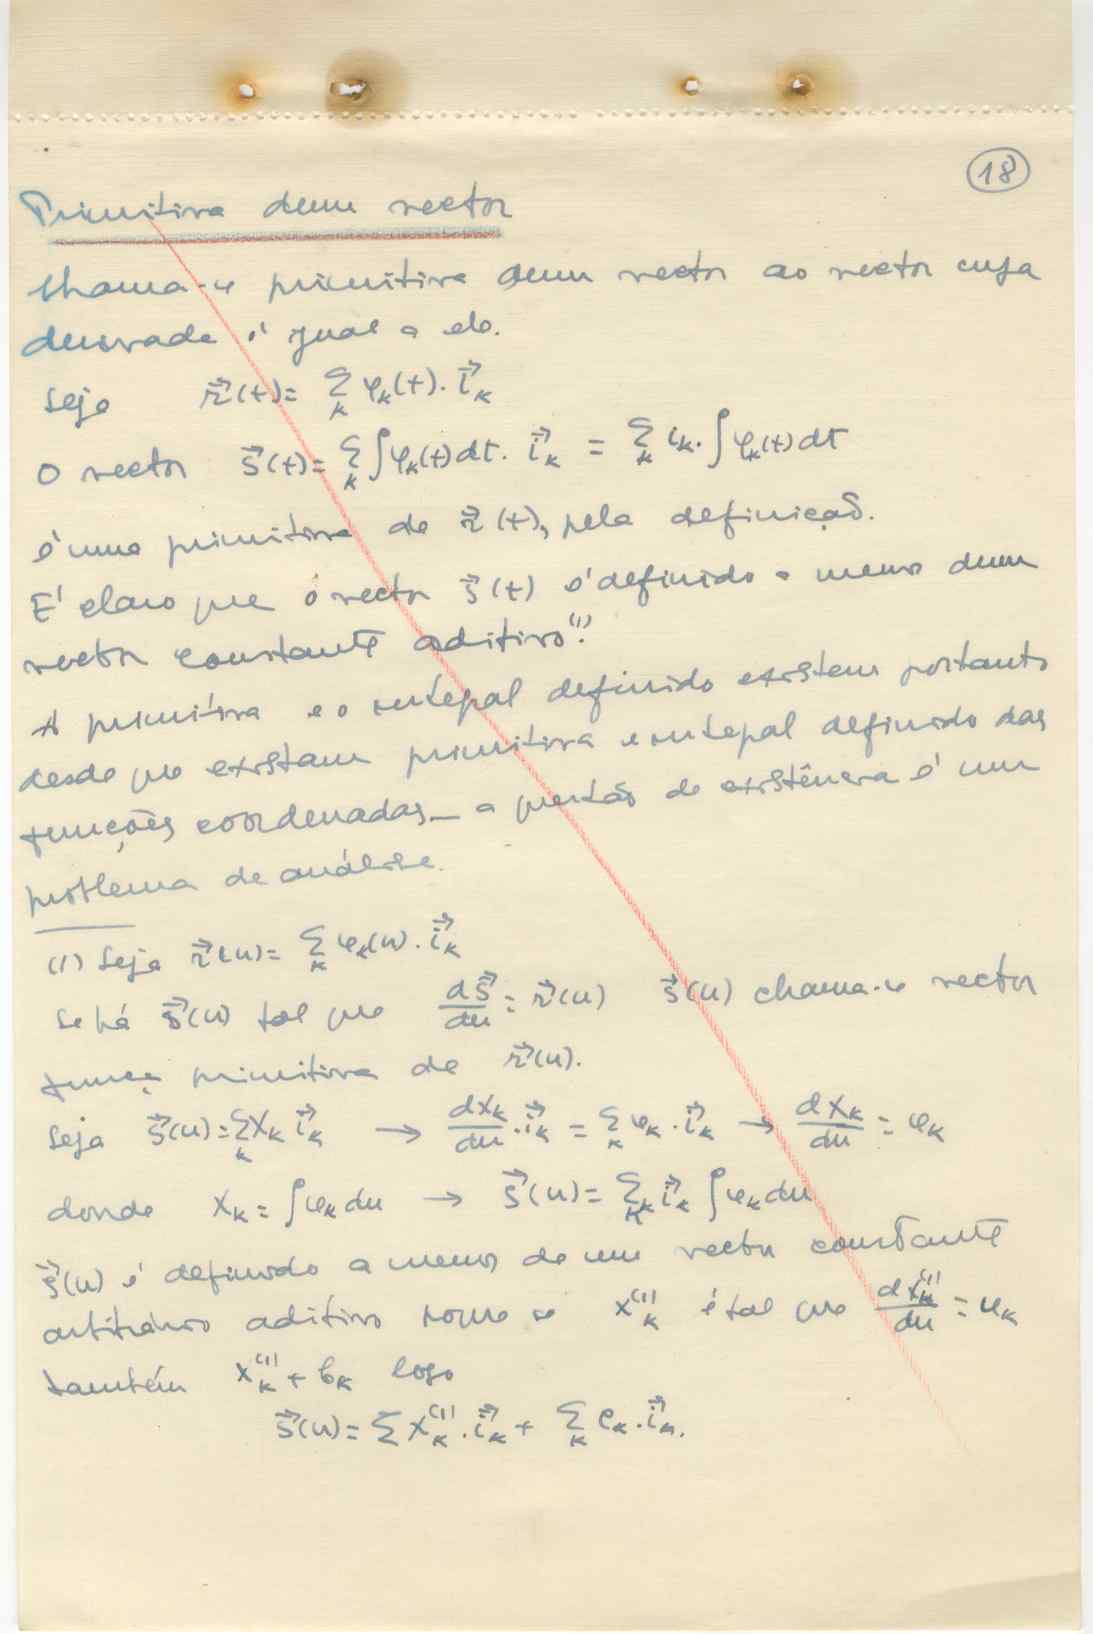 18
Primitiva dum vector
Chama-se primitiva dum vector ao vector cuja
derivada é igual a ele.
Seja $\vec{r}(t) = \sum_k \varphi_k(t) \cdot \vec{i}_k$
O vector $\vec{s}(t) = \sum_k \int \varphi_k(t) dt \cdot \vec{i}_k = \sum_k i_k \cdot \int \varphi_k(t) dt$
é uma primitiva de $\vec{r}(t)$, pela definição.
É claro que o vector $\vec{s}(t)$ é definido a menos dum
vector constante aditivo (1).
A primitiva e o integral definido existem portanto
desde que existam primitiva e integral definido das
funções coordenadas – a questão de existência é um
problema de análise.
(1) Seja $\vec{r}(u) = \sum_k \varphi_k(u) \cdot \vec{i}_k$
Se há $\vec{s}(u)$ tal que $\frac{d\vec{s}}{du} = \vec{r}(u)$ $\vec{s}(u)$ chama-se vector
função primitiva de $\vec{r}(u)$.
Seja $\vec{s}(u) = \sum_k X_k \vec{i}_k \to \frac{dX_k}{du} \cdot \vec{i}_k = \sum_k \varphi_k \cdot \vec{i}_k \to \frac{dX_k}{du} = \varphi_k$
donde $X_k = \int \varphi_k du \to \vec{s}(u) = \sum_k \vec{i}_k \int \varphi_k du$
$\vec{s}(u)$ é definido a menos de um vector constante
arbitrário aditivo se $X_k^{(1)}$ é tal que $\frac{dX_k^{(1)}}{du} = \varphi_k$
também $X_k^{(1)} + b_k$ logo
$\vec{s}(u) = \sum X_k^{(1)} \cdot \vec{i}_k + \sum_k c_k \cdot \vec{i}_k.$